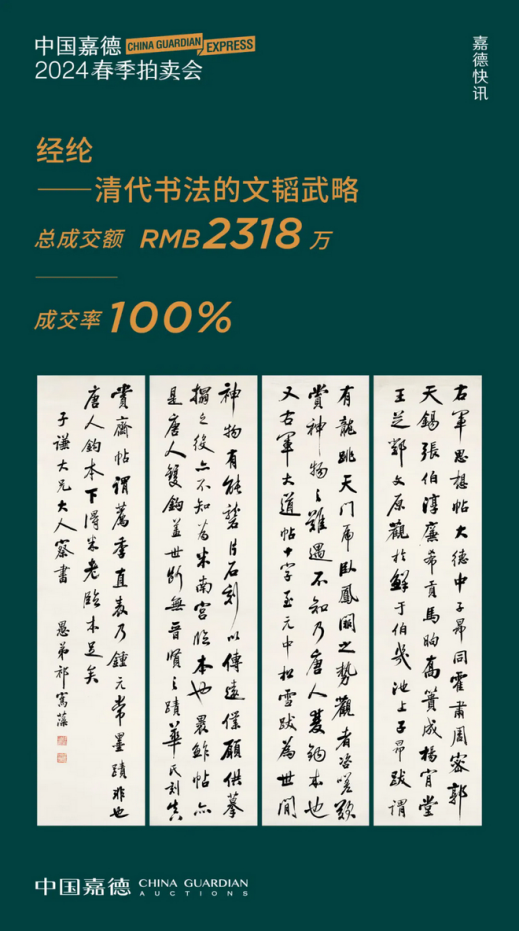 中国嘉德 CHINA GUARDIAN EXPRESS
2024春季拍卖会
嘉德快讯
经纶
——清代书法的文韬武略
总成交额 RMB2318万
成交率100%
右军思想帖大德中子昂同霍肃周密郭
天锡张伯淳廉希贡馬昫高簣成楊肯堂
王芝鄧文原觀於鮮于伯幾池上子昂跋謂
有龍跳天门虎卧鳳閣之勢觀者咨嗟歎
赏神物之難遇不知乃唐人雙鉤本也
又右軍大道帖十字至元中松雪跋為世間
神物有能礱片石刻以傳遠僕願供摹
搨之役亦不知為米南宫临本也最鲊帖亦
是唐人雙鉤盖世斷無晋賢之蹟華氏刻
賞齋帖謂薦季直表乃鍾元常墨蹟非也
唐人鉤本下得米老臨本足矣
子谦大兄大人察書
愚弟祁寯藻
中国嘉德 CHINA GUARDIAN
AUCTIONS